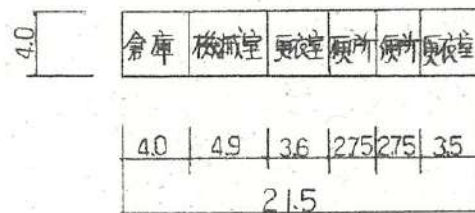 4.0
倉庫 機械室 更衣室 便所 便所 更衣室
4.0 4.9 3.6 2.75 2.75 3.5
21.5